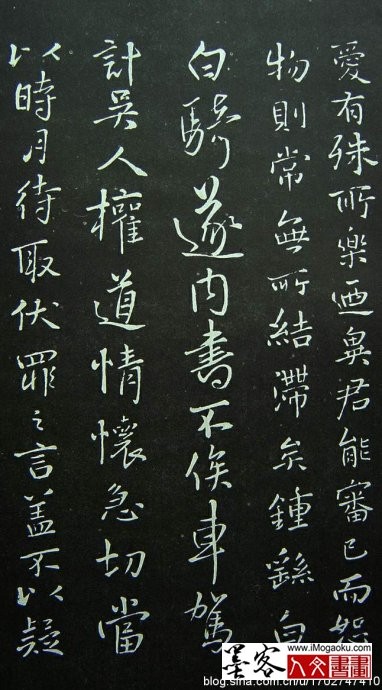 愛有殊所樂迺異君能審己而恕
物則常無所結滯矣鍾繇白
白騎遂內書不俟車駕
計吳人權道情懷急切當
以時月待取伏罪之言蓋不以疑
www.iMogaoku.com
墨客人文書畫
blog.sina.com.cn/u/1702747410